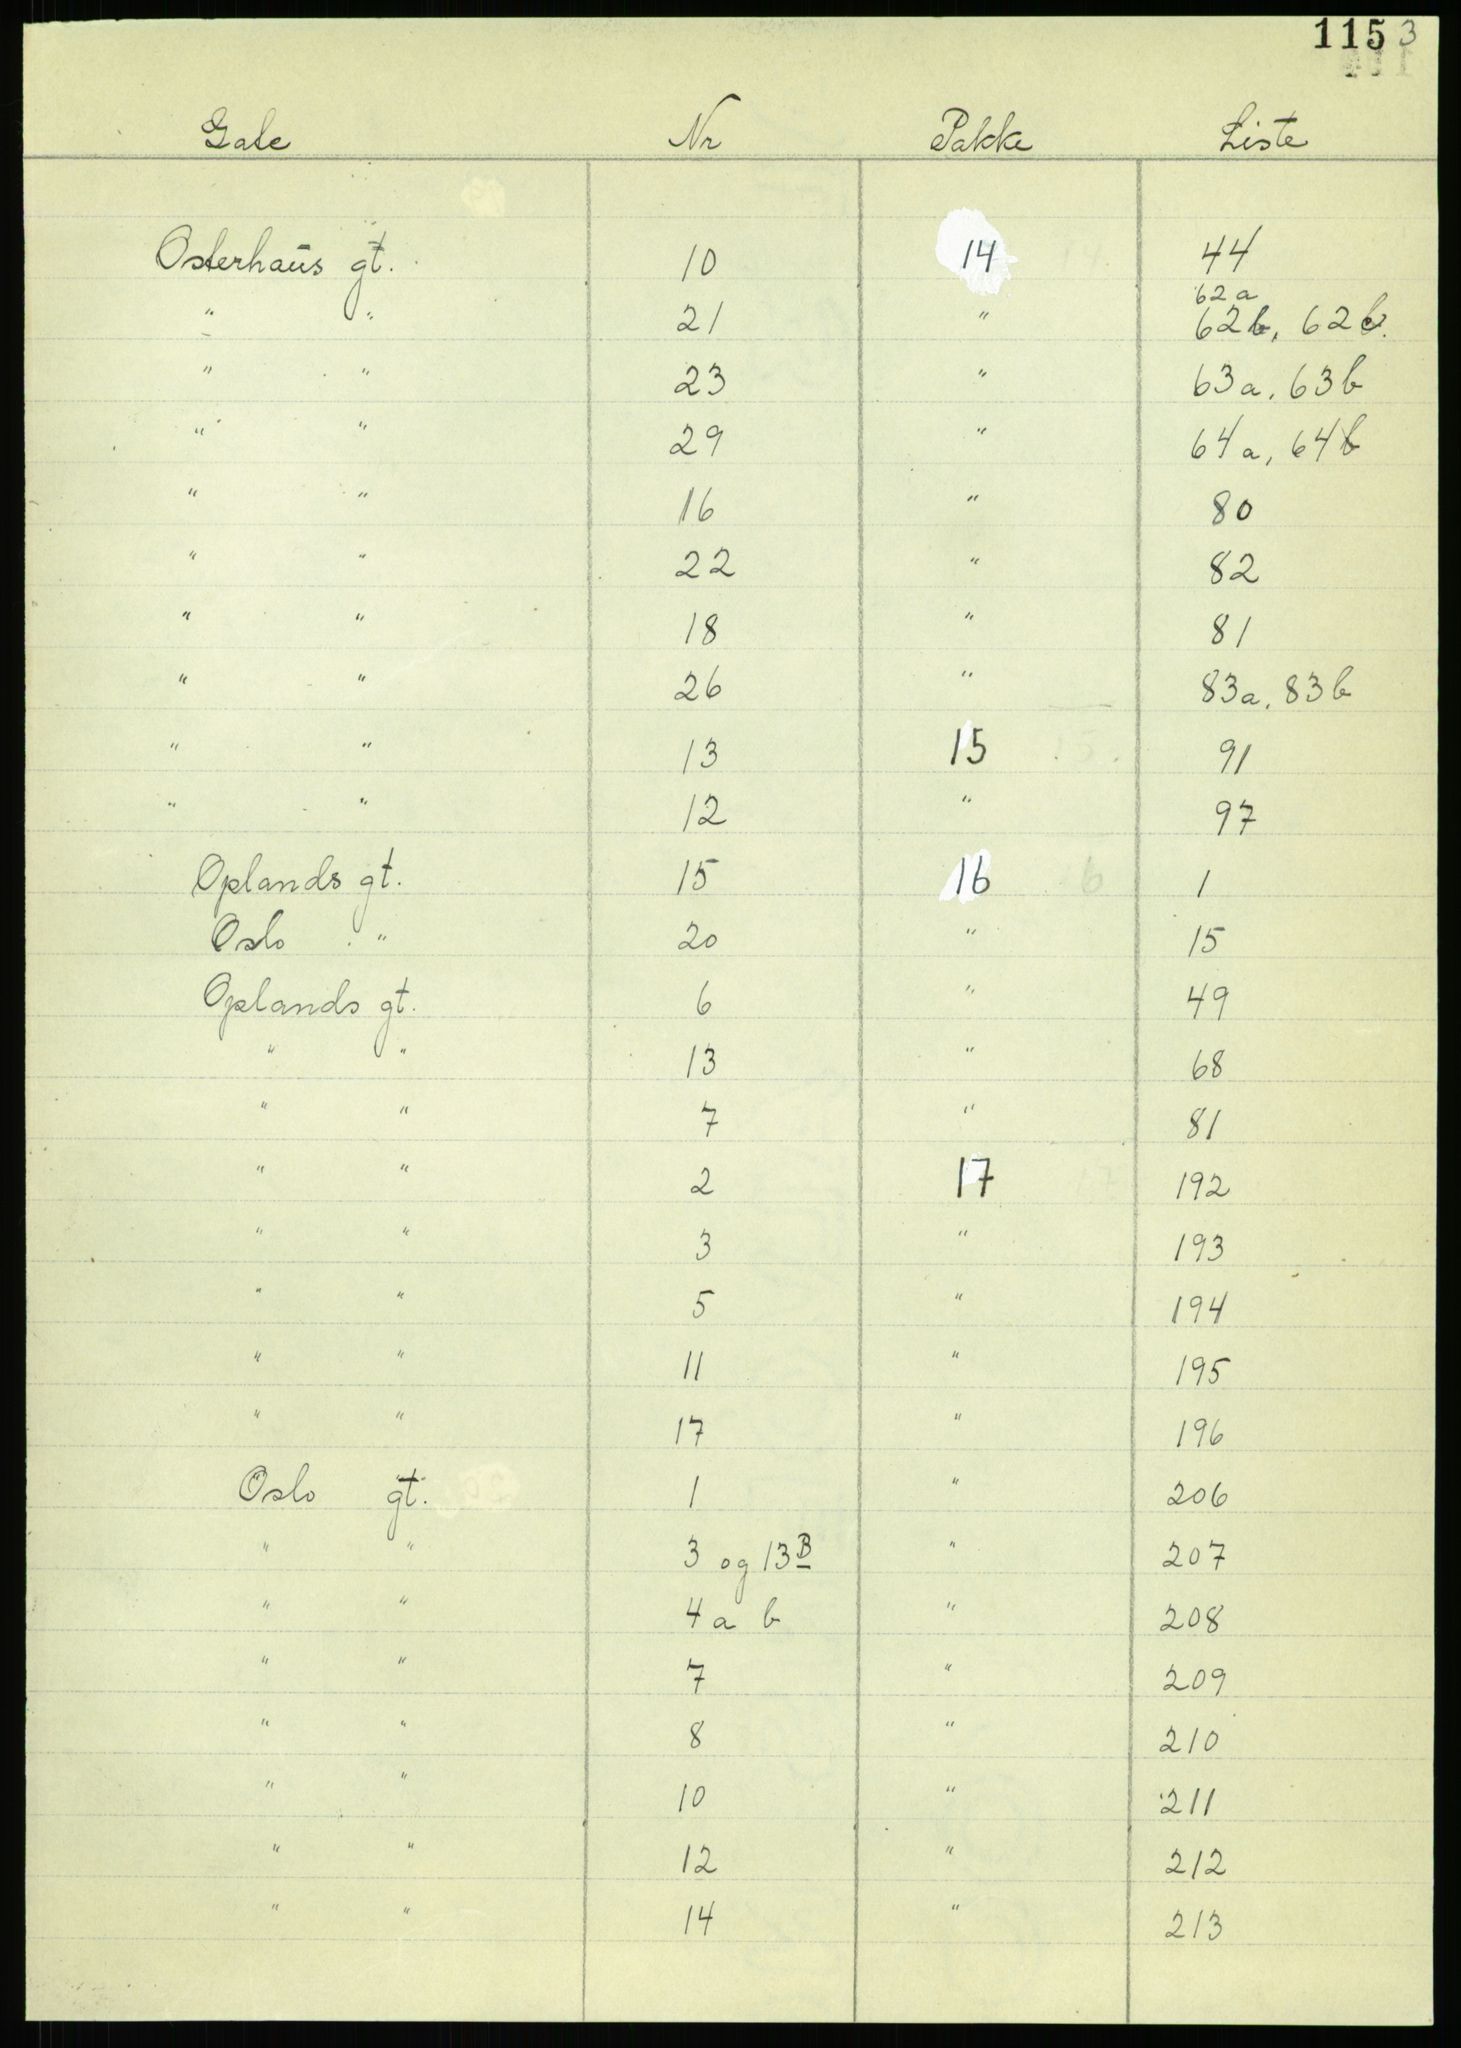 115 3
Gate Nr Pakke Liste
Osterhaus gt. 10 14 44
62a
" " 21 " 62b, 62c.
" " 23 " 63a, 63b
" " 29 " 64a, 64b
" " 16 " 80
" " 22 " 82
" " 18 " 81
" " 26 " 83a, 83b
" " 13 15 91
" " 12 " 97
Oplands gt. 15 16 1
Oslo " 20 " 15
Oplands gt. 6 " 49
" " 13 " 68
" " 7 " 81
" " 2 17 192
" " 3 " 193
" " 5 " 194
" " 11 " 195
" " 17 " 196
Oslo gt. 1 " 206
" " 3 og 13B " 207
" " 4a b " 208
" " 7 " 209
" " 8 " 210
" " 10 " 211
" " 12 " 212
" " 14 " 213